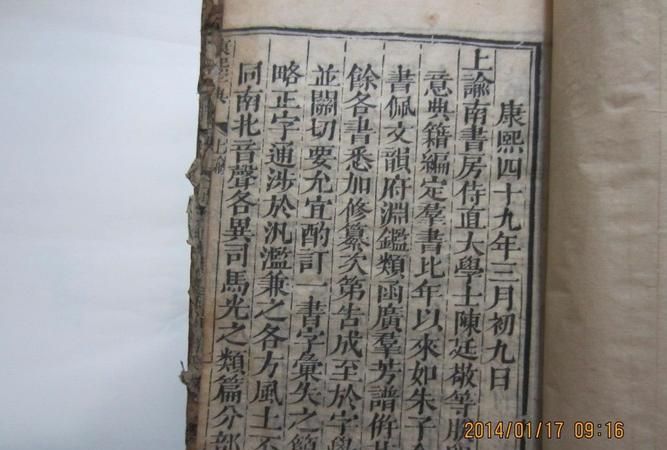 康熙四十九年三月初九日
上諭南書房侍直大學士陳廷敬等朕
意典籍編定羣書比年以來如朱子
書佩文韻府淵鑑類函廣羣芳譜併
餘各書悉加修纂次第告成至於字學
並關切要允宜酌訂一書字彙失之簡
略正字通涉於汎濫兼之各方風土不
同南北音聲各異司馬光之類篇分部
康熙字典
上諭
2014/01/17 09:16